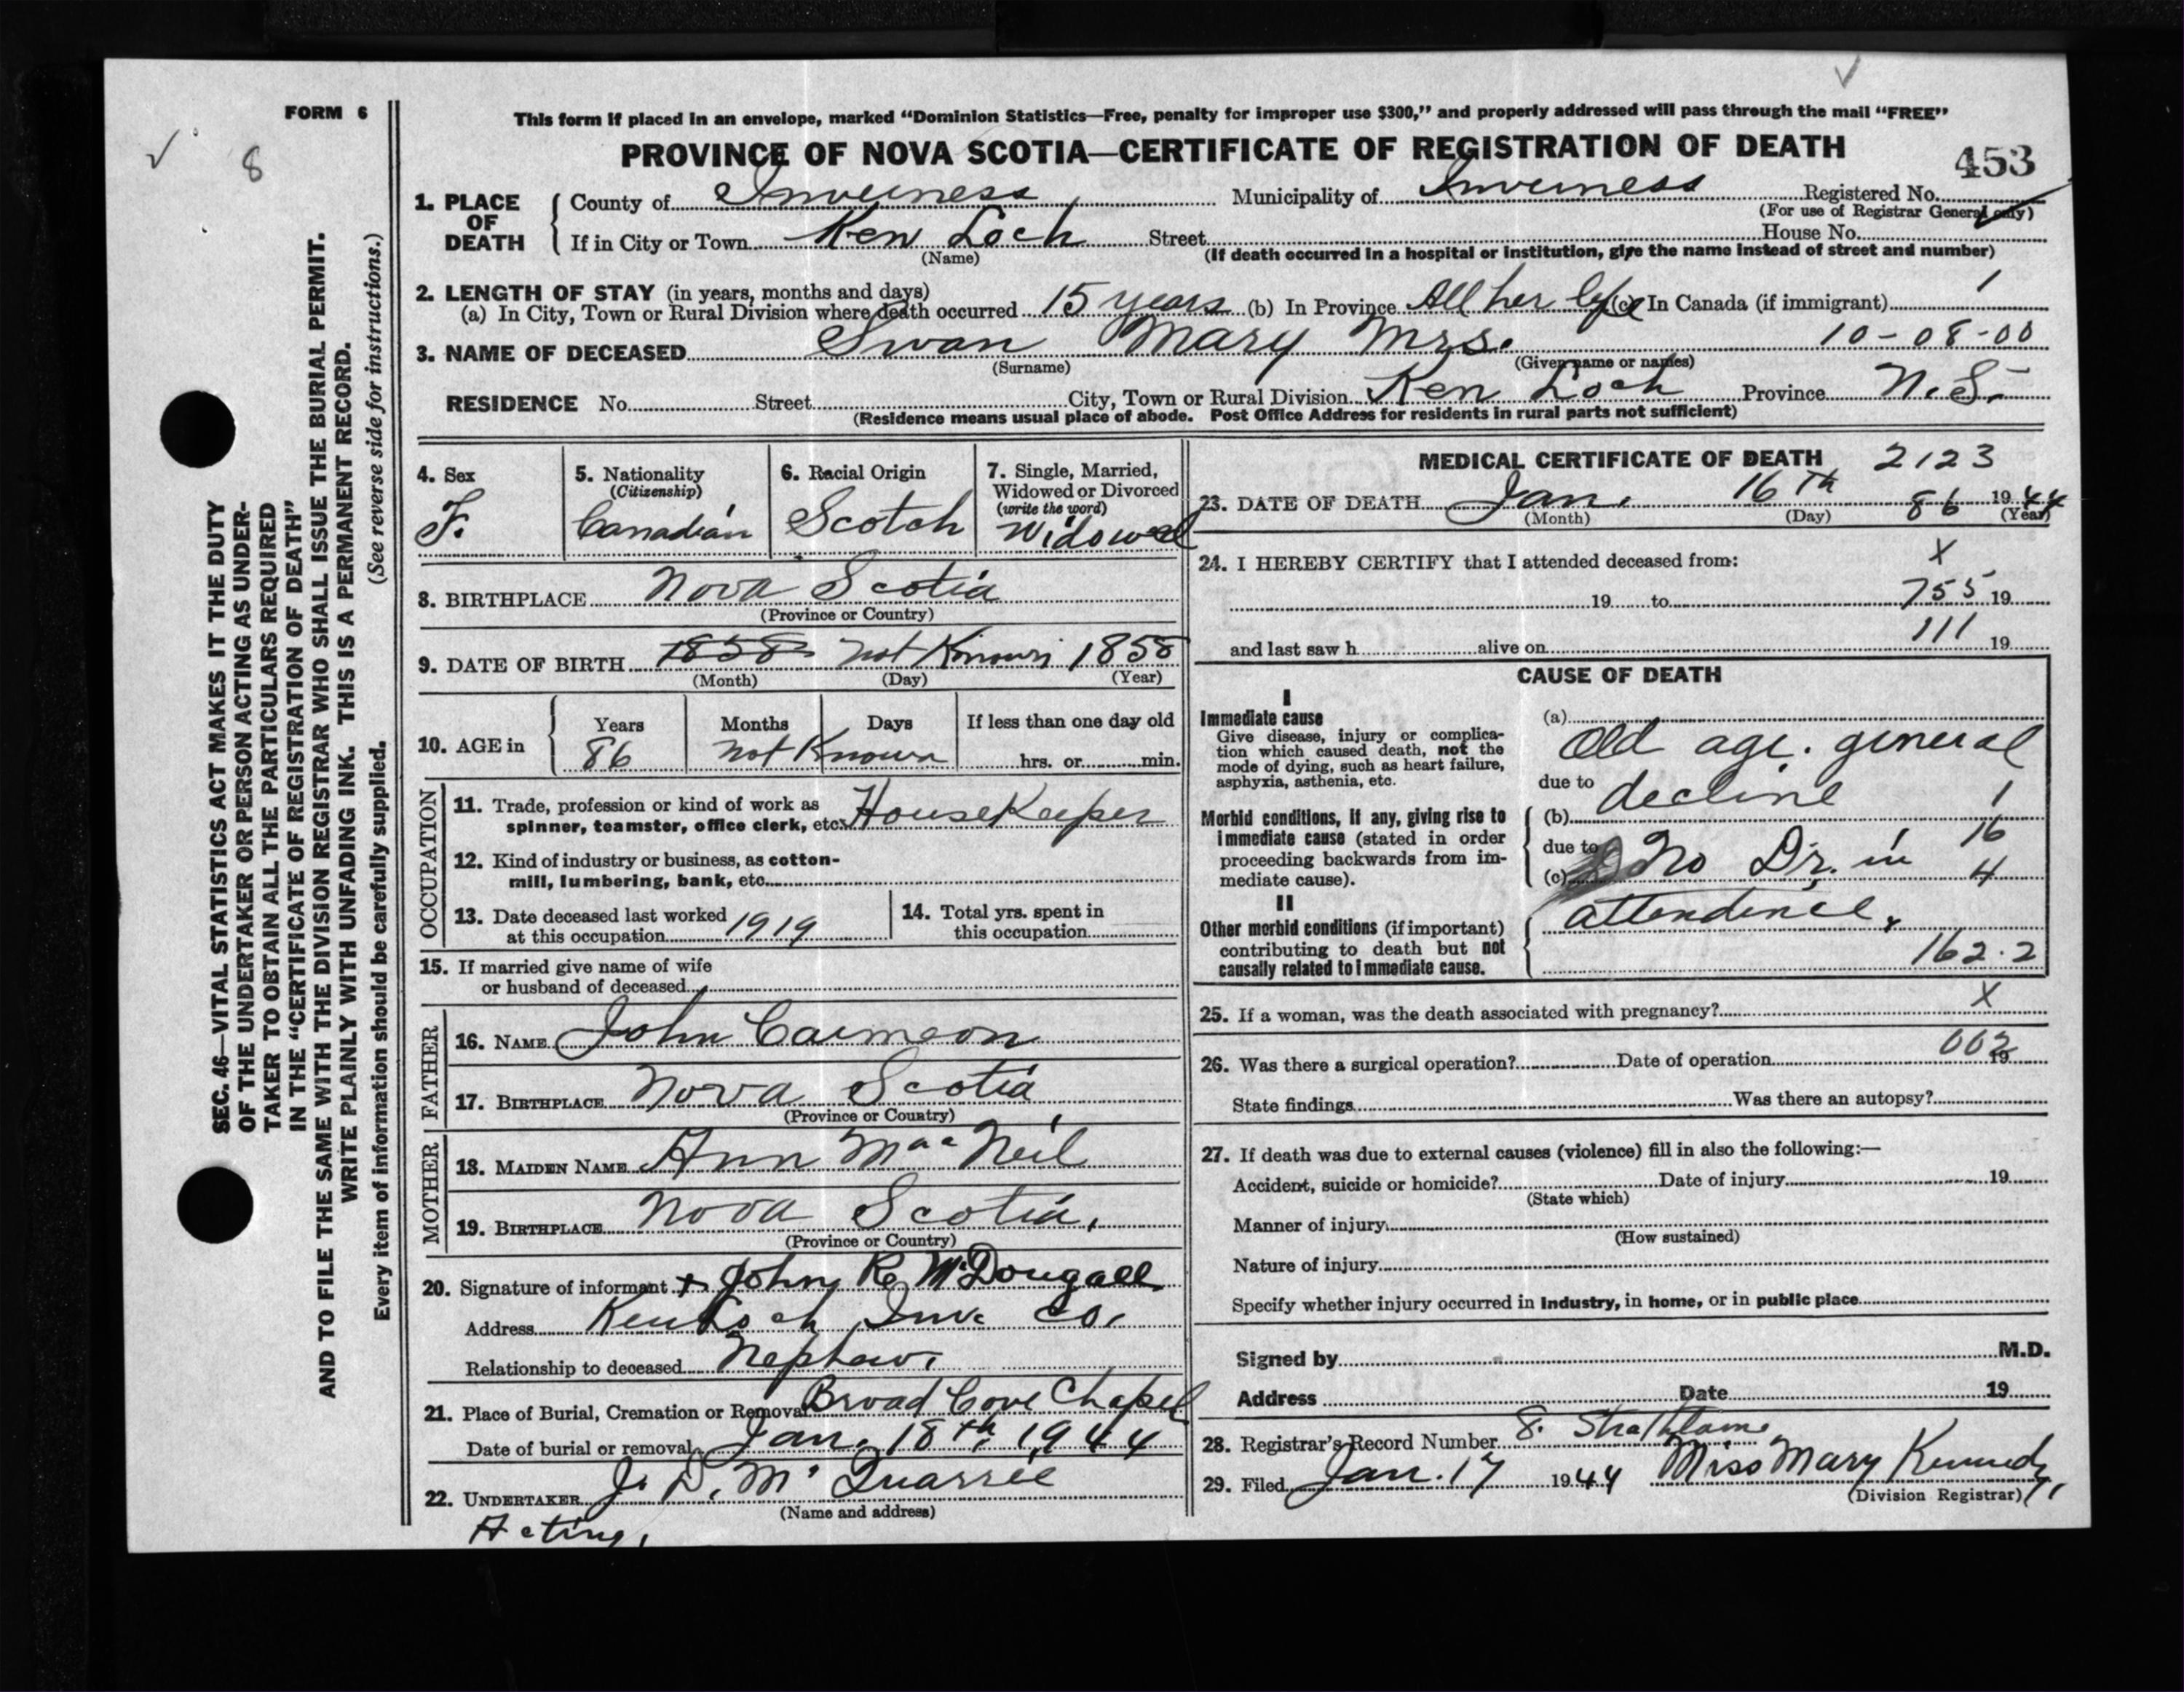 FORM 6
8
SEC. 46—VITAL STATISTICS ACT MAKES IT THE DUTY
OF THE UNDERTAKER OR PERSON ACTING AS UNDER-
TAKER TO OBTAIN ALL THE PARTICULARS REQUIRED
IN THE "CERTIFICATE OF REGISTRATION OF DEATH"
AND TO FILE THE SAME WITH THE DIVISION REGISTRAR WHO SHALL ISSUE THE BURIAL PERMIT.
WRITE PLAINLY WITH UNFADING INK. THIS IS A PERMANENT RECORD.
Every item of information should be carefully supplied. (See reverse side for instructions.)
This form if placed in an envelope, marked "Dominion Statistics—Free, penalty for improper use $300," and properly addressed will pass through the mail "FREE"
PROVINCE OF NOVA SCOTIA—CERTIFICATE OF REGISTRATION OF DEATH
453
1. PLACE OF DEATH
County of Inverness Municipality of Inverness Registered No.
(For use of Registrar General only)
If in City or Town Ken Loch Street House No.
(Name) (If death occurred in a hospital or institution, give the name instead of street and number)
2. LENGTH OF STAY (in years, months and days)
(a) In City, Town or Rural Division where death occurred 15 years (b) In Province All her life (c) In Canada (if immigrant) 1
3. NAME OF DECEASED Swan Mary Mrs. 10-08-00
(Surname) (Given name or names)
RESIDENCE No. Street City, Town or Rural Division Ken Loch Province N.S.
(Residence means usual place of abode. Post Office Address for residents in rural parts not sufficient)
4. Sex
F.
5. Nationality
(Citizenship)
Canadian
6. Racial Origin
Scotch
7. Single, Married,
Widowed or Divorced
(write the word)
Widowed
8. BIRTHPLACE Nova Scotia
(Province or Country)
9. DATE OF BIRTH 1858 not Known 1858
(Month) (Day) (Year)
10. AGE in
Years Months Days If less than one day old
86 not Known hrs. or min.
OCCUPATION
11. Trade, profession or kind of work as
spinner, teamster, office clerk, etc. HouseKeeper
12. Kind of industry or business, as cotton-
mill, lumbering, bank, etc.
13. Date deceased last worked
at this occupation 1919
14. Total yrs. spent in
this occupation
15. If married give name of wife
or husband of deceased
FATHER
16. NAME John Caimeon
17. BIRTHPLACE Nova Scotia
(Province or Country)
MOTHER
18. MAIDEN NAME Ann MacNeil
19. BIRTHPLACE Nova Scotia,
(Province or Country)
20. Signature of informant + John R McDougall
Address Ken Loch Inv. Co.
Relationship to deceased Nephew.
21. Place of Burial, Cremation or Removal Broad Cove Chapel
Date of burial or removal Jan. 18th, 1944
22. UNDERTAKER J. D. Mc Quarrie
(Name and address)
Acting,
MEDICAL CERTIFICATE OF DEATH 2123
23. DATE OF DEATH Jan. 16Th 86 1944
(Month) (Day) (Year)
24. I HEREBY CERTIFY that I attended deceased from: X
19 to 755 19
111
and last saw h alive on 19
CAUSE OF DEATH
I
Immediate cause
Give disease, injury or complica-
tion which caused death, not the
mode of dying, such as heart failure,
asphyxia, asthenia, etc.
(a)
Old age. general
due to decline
Morbid conditions, if any, giving rise to
immediate cause (stated in order
proceeding backwards from im-
mediate cause).
(b) 1
due to 16
(c) No Dr. in 4
II
Other morbid conditions (if important)
contributing to death but not
causally related to immediate cause.
attendince,
162.2
25. If a woman, was the death associated with pregnancy? X
26. Was there a surgical operation? Date of operation 002 19
State findings Was there an autopsy?
27. If death was due to external causes (violence) fill in also the following:—
Accident, suicide or homicide? Date of injury 19
(State which)
Manner of injury
(How sustained)
Nature of injury
Specify whether injury occurred in Industry, in home, or in public place
Signed by M.D.
Address Date 19
28. Registrar's Record Number 8.
29. Filed Jan. 17 1944 Miss Mary Kennedy,
(Division Registrar)